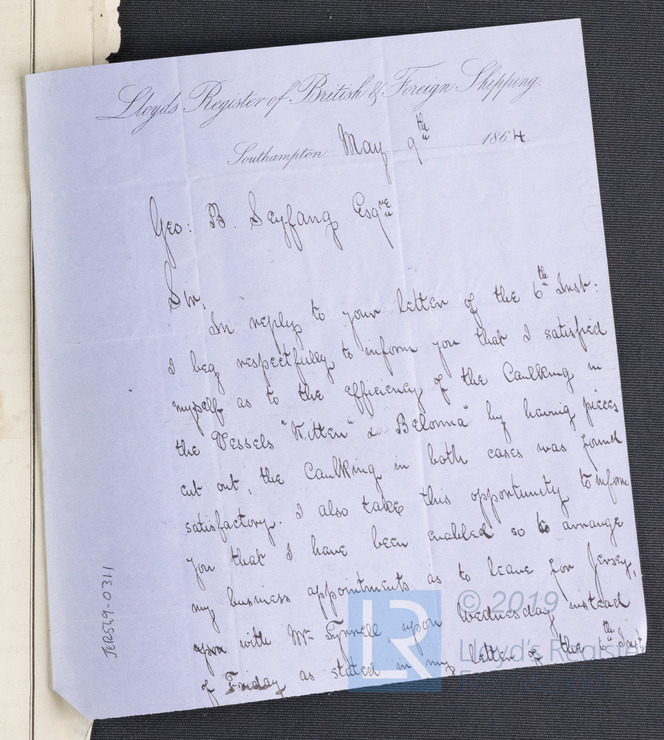 Lloyds Register of British & Foreign Shipping.
Southampton May 9th 1864
Geo: B. Seyfang Esqre
Sir,
In reply to your letter of the 6th Inst:
I beg respectfully to inform you that I satisfied
myself as to the efficiency of the Caulking in
the Vessels "Kitten" & Bellona" by having pieces
cut out, the Caulking in both cases was found
satisfactory. I also take this opportunity to inform
you that I have been enabled so to arrange
my business appointments as to leave for Jersey,
upon with Mr upon Wednesday instead
of Friday as stated in my letter of the Inst
JERS49-0311
LR
© 2019
Lloyd's Register